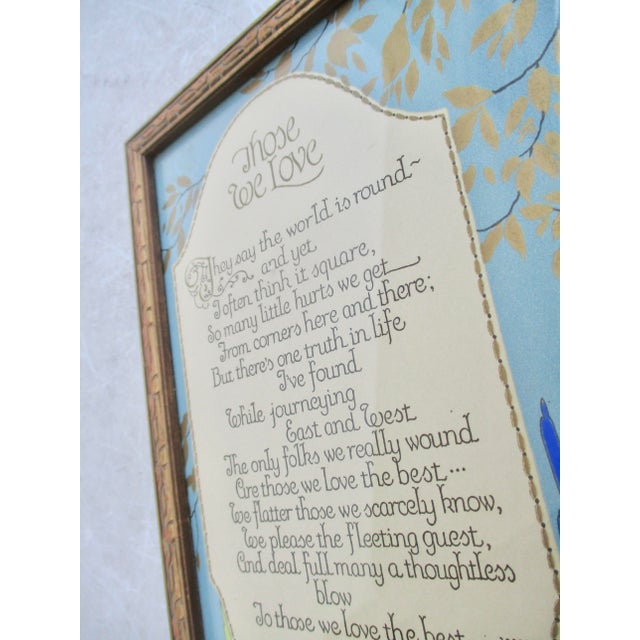 Those
We Love
They say the world is round~
and yet
I often think it square,
So many little hurts we get
From corners here and there;
But there's one truth in life
I've found
While journeying
East and West
The only folks we really wound
Are those we love the best...
We flatter those we scarcely know,
We please the fleeting guest,
And deal full many a thoughtless
blow
To those we love the best